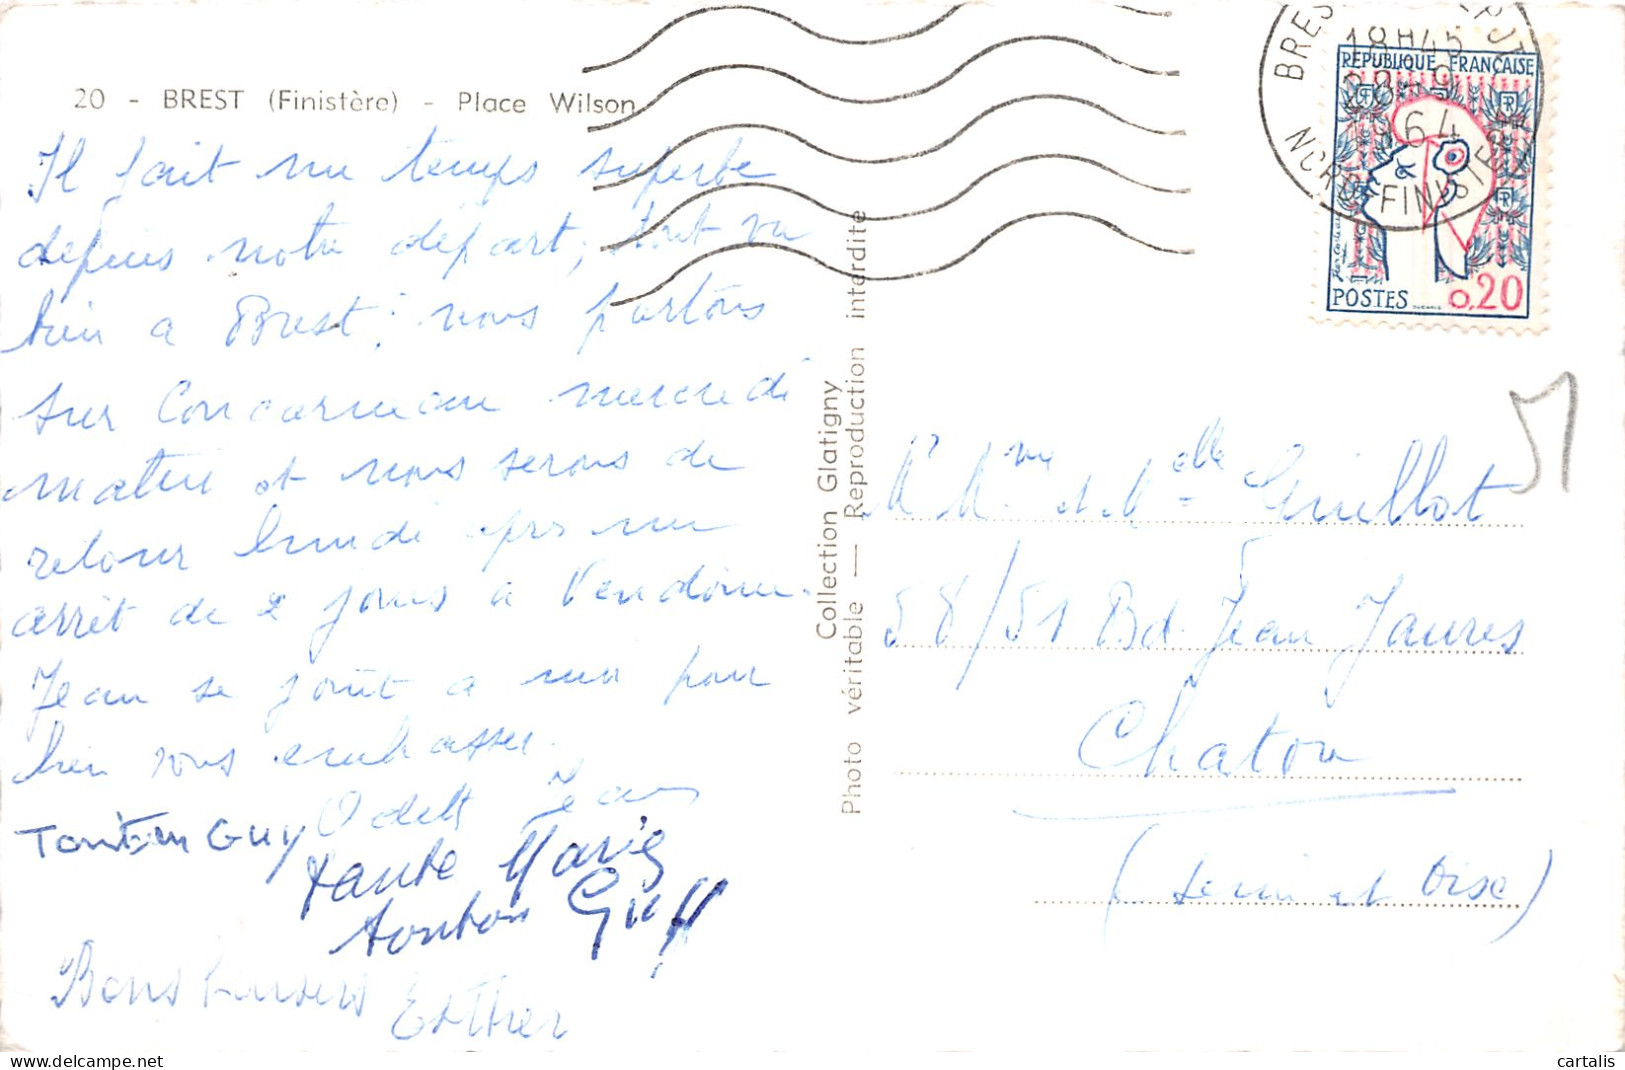 20 - BREST (Finistère) - Place Wilson
Il fait un temps superbe
depuis notre départ, tout va
bien a Brest, nous partons
sur Concarneau mercredi
matin et nous serons de
retour lundi après un
arrêt de 2 jours a Vendôme.
Jean se joint a moi pour
bien vous embrasser.
Odette Jean
Tonton Guy
Tante Marie
tonton
Bons baisers Esther
Collection Glatigny
Photo véritable — Reproduction interdite
BREST
18H45
28-9
1964
NORD FINISTERE
REPUBLIQUE FRANÇAISE
POSTES 0,20
51
Mr Mme et Melle Guillot
58/51 Bd. Jean Jaures
Chatou
(Seine et Oise)
cartalis